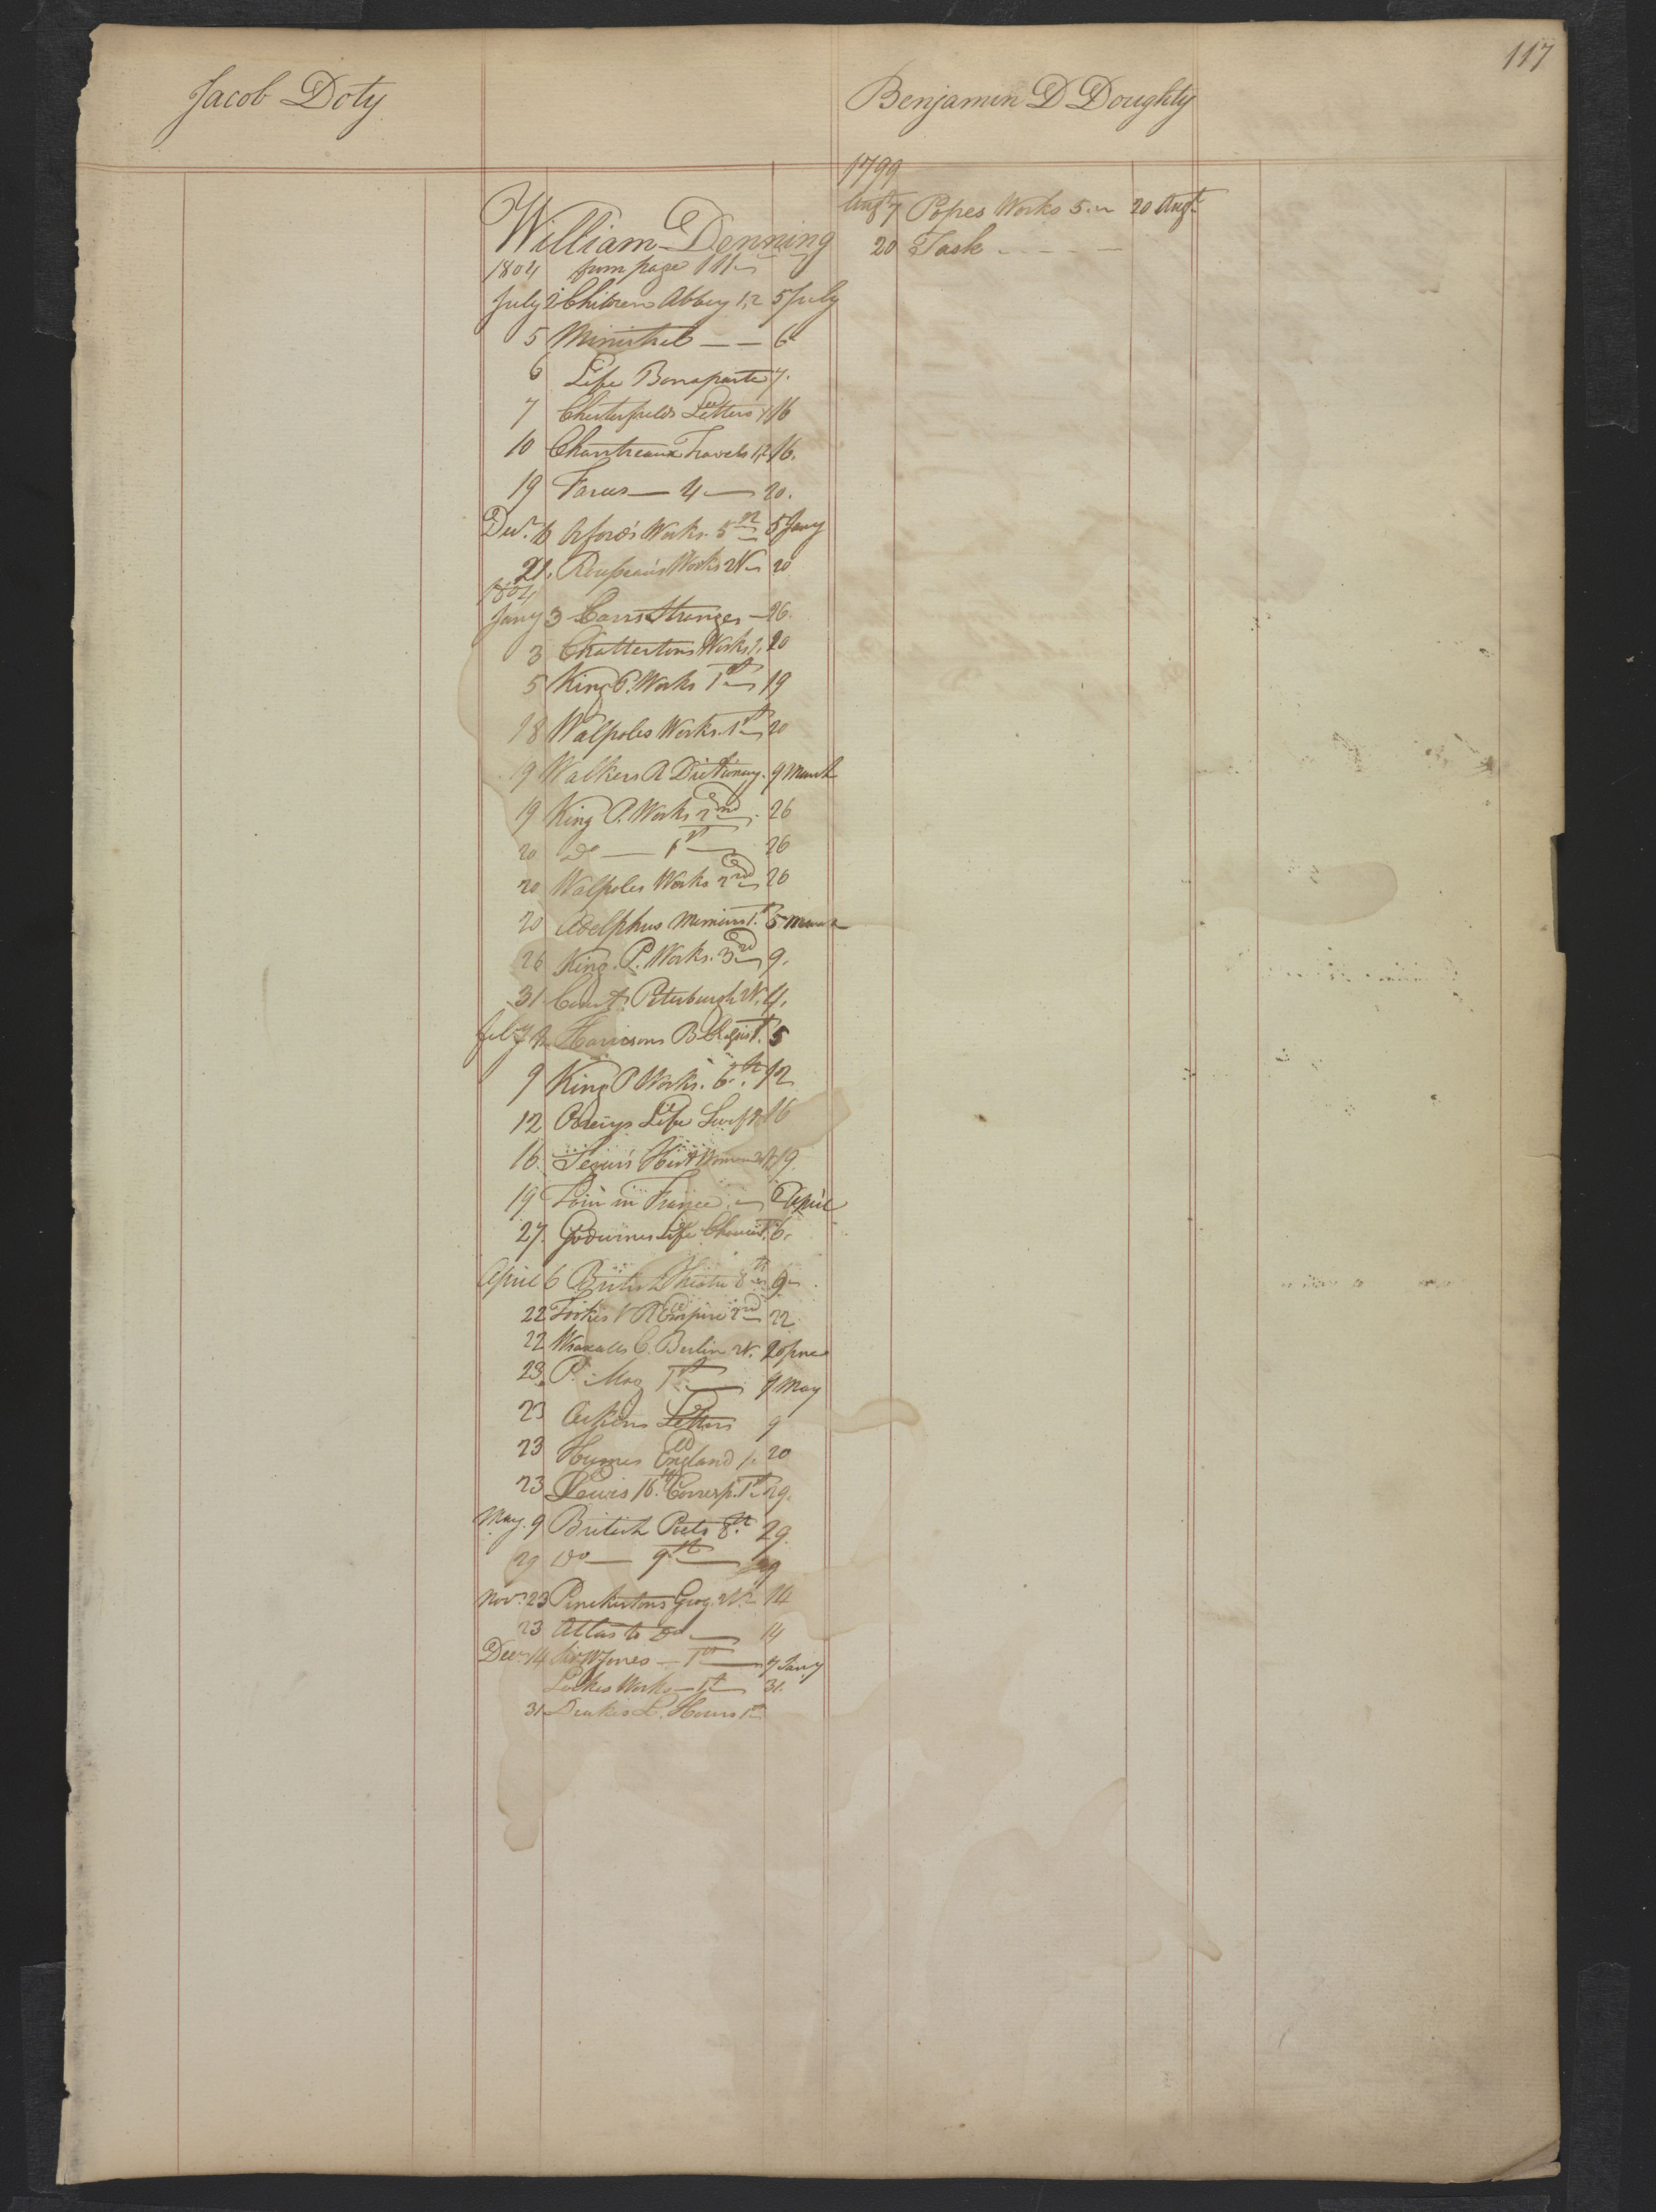 117
Jacob Doty
Benjamin D Doughty
William Denning
1804 from page 111
July 2 Children Abbey 1,2 5 July
5 Minstrel — — 6
6 Life Bonaparte 7.
7 Chesterfields Letters 1 16
10 Chantreaux Travels 1,2 16.
19 Farces — 4 — 20.
Decr. Orford's Works. 5 5 Jany
21. Rousseau's Works 20
1804
Jany 3 Carrs Stranger — 26.
3 Chattertons Works 1, 20
5 King P. Works 1st 19
18 Walpoles Works. 1st 20
19 Walkers R Dictionary. 9 March
19 King P. Works 2nd. 26
20 Do — 1st — 26
20 Walpoles Works 2nd 26
20 Adelphus Memoirs 1. 5 March
26 King. P. Works. 3rd 9.
31 Court Petersburgh 4.
Feby Harrisons B. 5
9 King P Works. 6th. 12
12 Life Swift 16
16. Segurs Hist Women 19.
19 in France 6 April
27. Godwins Life Chaucer 6.
April 6 British Theatre 8th 9
22 Empire 2nd 22
22 Wraxalls C. Berlin 20
23. P. Mag 1st — 7 May
23 Letters 9
23 Humes England 1. 20
23 Lewis 16th Corresp. 1st 29.
May. 9 British Poets 8th. 29.
29 Do — 9th — 29
Novr. 23 Pinkertons Geog. 14
23 Atlas to Do — 14
Decr. 14 Sir W Jones — 1st — 7 Jany
Lockes Works — 1st 31.
31 Drakes L. Hours 1st
1799
Augt 7 Popes Works 5. 20 Augt.
20 Task - - - -